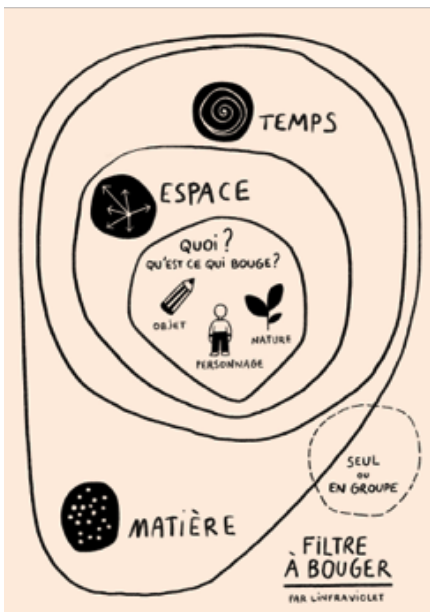 TEMPS
ESPACE
QUOI ?
QU'EST CE QUI BOUGE ?
OBJET
PERSONNAGE
NATURE
SEUL
OU
EN GROUPE
MATIÈRE
FILTRE
À BOUGER
PAR L'INFRAVIOLET